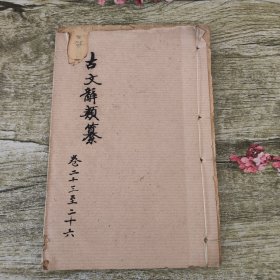 古文辭類纂
卷二十三至二十六